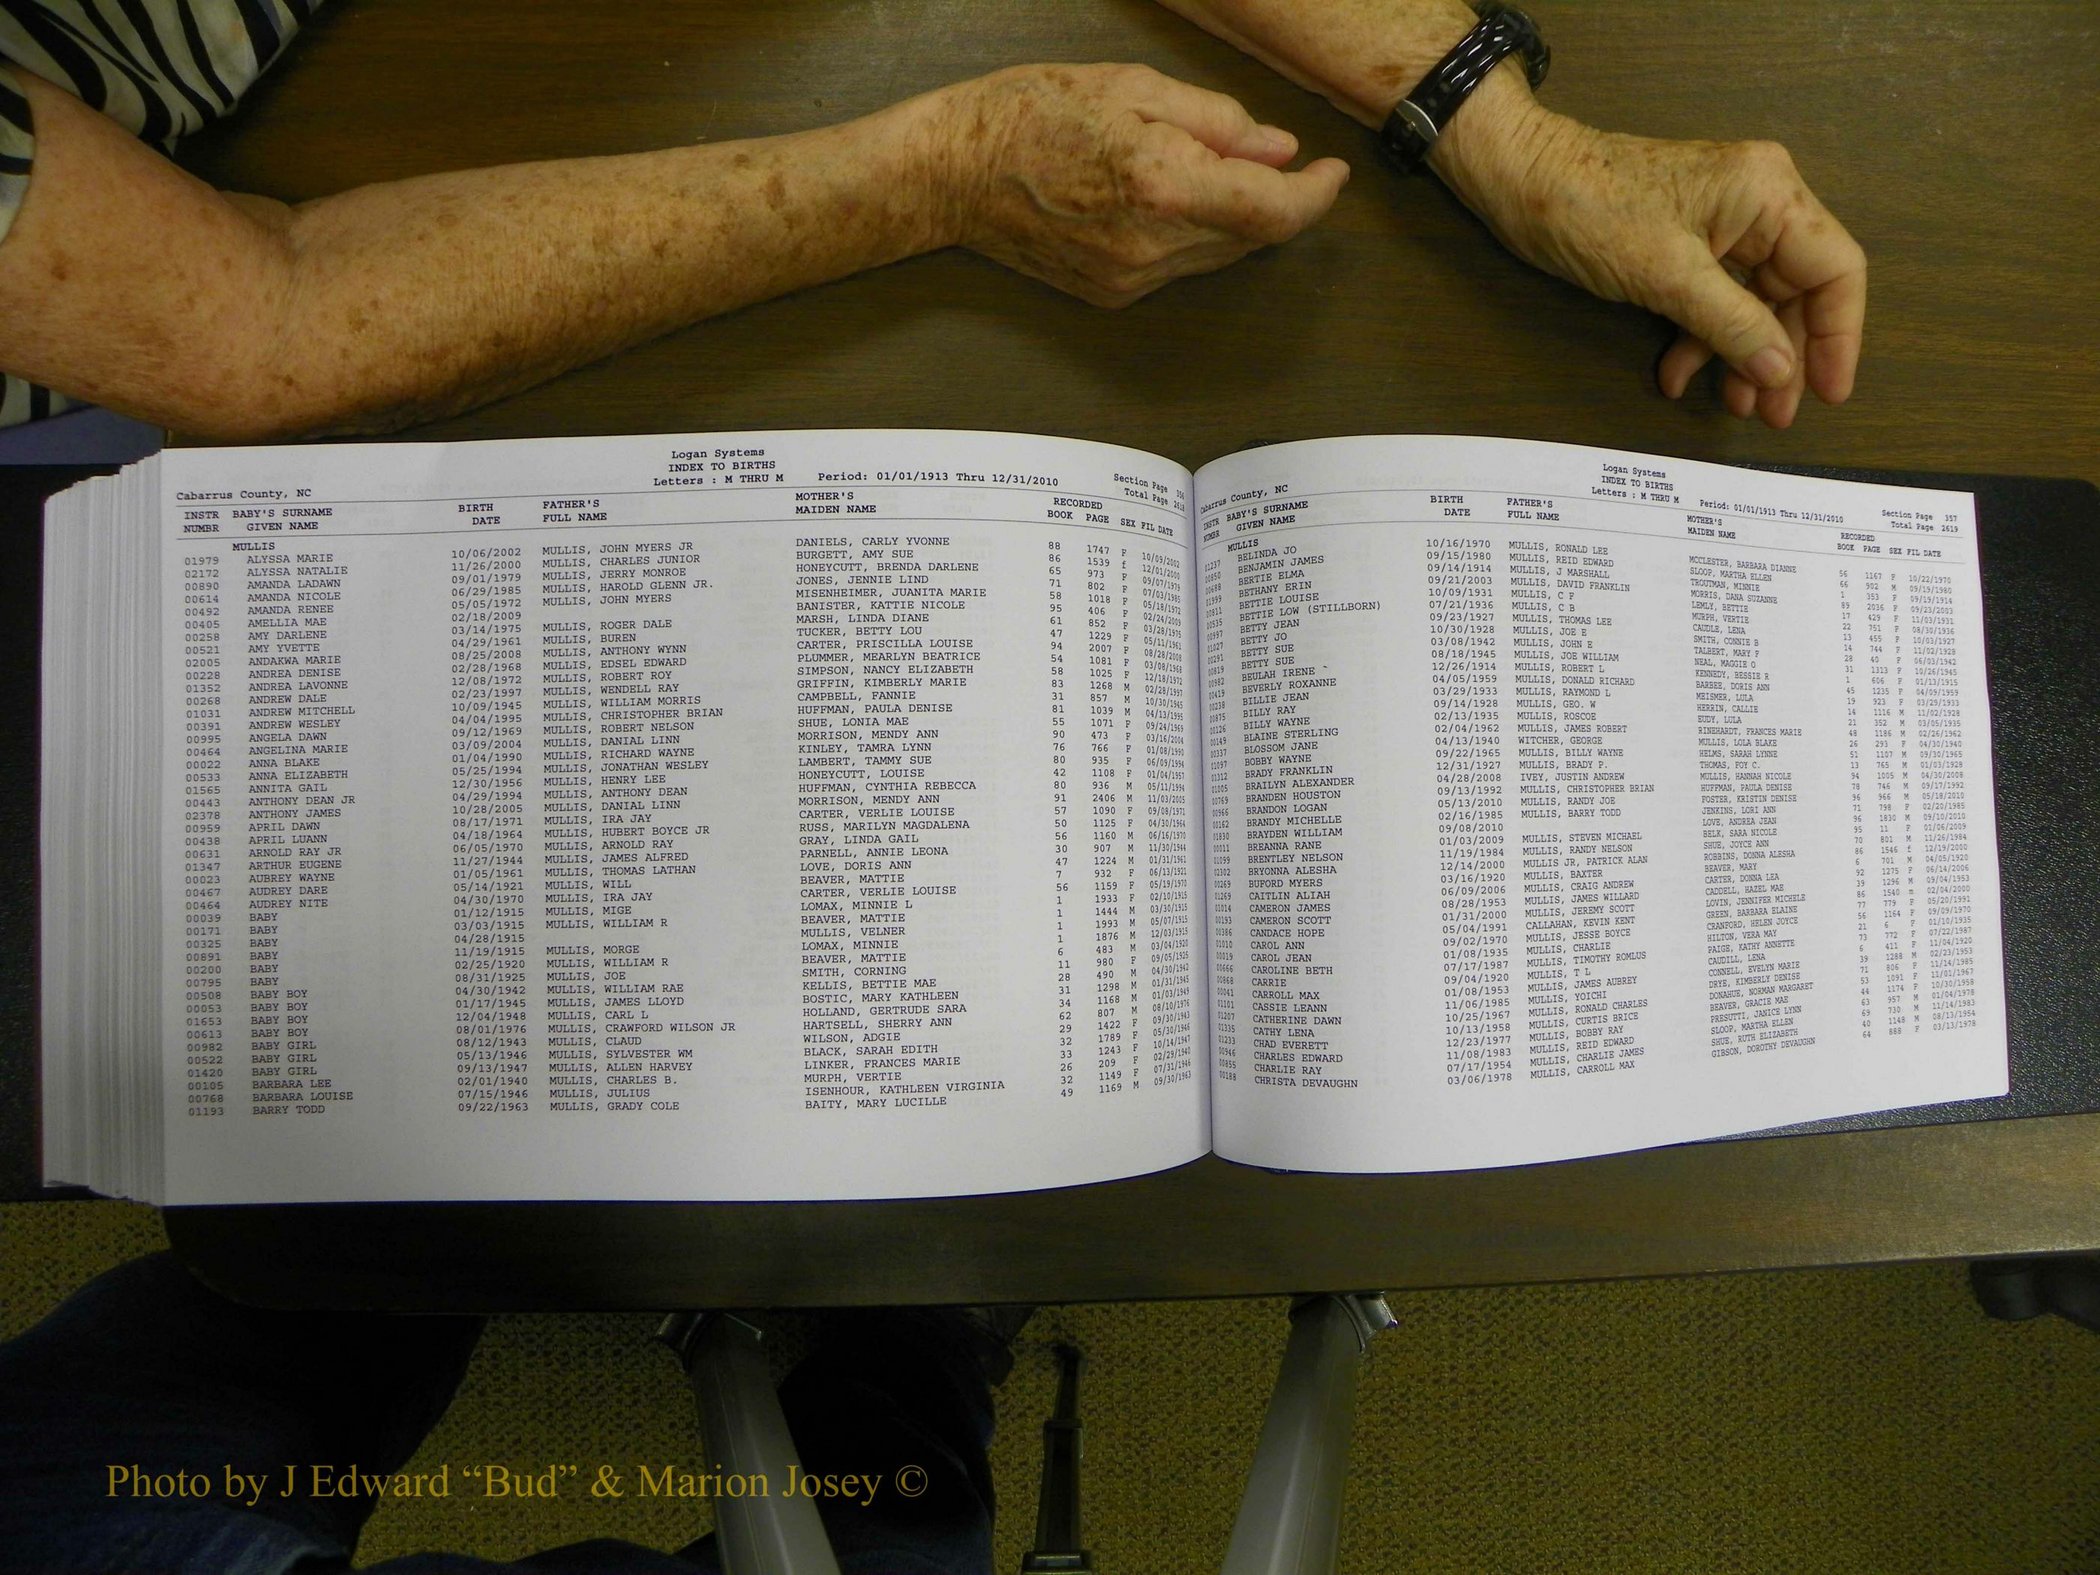 Logan Systems
INDEX TO BIRTHS
Cabarrus County, NC Letters : M THRU M Period: 01/01/1913 Thru 12/31/2010 Section Page 356
Total Page 2618
INSTR BABY'S SURNAME BIRTH FATHER'S MOTHER'S RECORDED
NUMBR GIVEN NAME DATE FULL NAME MAIDEN NAME BOOK PAGE SEX FIL DATE
MULLIS
01979 ALYSSA MARIE 10/06/2002 MULLIS, JOHN MYERS JR DANIELS, CARLY YVONNE 88 1747 F 10/09/2002
02172 ALYSSA NATALIE 11/26/2000 MULLIS, CHARLES JUNIOR BURGETT, AMY SUE 86 1539 f 12/01/2000
00890 AMANDA LADAWN 09/01/1979 MULLIS, JERRY MONROE HONEYCUTT, BRENDA DARLENE 65 973 F 09/07/1979
00614 AMANDA NICOLE 06/29/1985 MULLIS, HAROLD GLENN JR. JONES, JENNIE LIND 71 802 F 07/03/1985
00492 AMANDA RENEE 05/05/1972 MULLIS, JOHN MYERS MISENHEIMER, JUANITA MARIE 58 1018 F 05/18/1972
00405 AMELLIA MAE 02/18/2009 BANISTER, KATTIE NICOLE 95 406 F 02/24/2009
00258 AMY DARLENE 03/14/1975 MULLIS, ROGER DALE MARSH, LINDA DIANE 61 852 F 03/28/1975
00521 AMY YVETTE 04/29/1961 MULLIS, BUREN TUCKER, BETTY LOU 47 1229 F 05/11/1961
02005 ANDAKWA MARIE 08/25/2008 MULLIS, ANTHONY WYNN CARTER, PRISCILLA LOUISE 94 2007 F 08/28/2008
00228 ANDREA DENISE 02/28/1968 MULLIS, EDSEL EDWARD PLUMMER, MEARLYN BEATRICE 54 1081 F 03/08/1968
01352 ANDREA LAVONNE 12/08/1972 MULLIS, ROBERT ROY SIMPSON, NANCY ELIZABETH 58 1025 F 12/18/1972
00268 ANDREW DALE 02/23/1997 MULLIS, WENDELL RAY GRIFFIN, KIMBERLY MARIE 83 1268 M 02/28/1997
01031 ANDREW MITCHELL 10/09/1945 MULLIS, WILLIAM MORRIS CAMPBELL, FANNIE 31 857 M 10/30/1945
00391 ANDREW WESLEY 04/04/1995 MULLIS, CHRISTOPHER BRIAN HUFFMAN, PAULA DENISE 81 1039 M 04/13/1995
00995 ANGELA DAWN 09/12/1969 MULLIS, ROBERT NELSON SHUE, LONIA MAE 55 1071 F 09/24/1969
00464 ANGELINA MARIE 03/09/2004 MULLIS, DANIAL LINN MORRISON, MENDY ANN 90 473 F 03/16/2004
00022 ANNA BLAKE 01/04/1990 MULLIS, RICHARD WAYNE KINLEY, TAMRA LYNN 76 766 F 01/08/1990
00533 ANNA ELIZABETH 05/25/1994 MULLIS, JONATHAN WESLEY LAMBERT, TAMMY SUE 80 935 F 06/09/1994
01565 ANNITA GAIL 12/30/1956 MULLIS, HENRY LEE HONEYCUTT, LOUISE 42 1108 F 01/04/1957
00443 ANTHONY DEAN JR 04/29/1994 MULLIS, ANTHONY DEAN HUFFMAN, CYNTHIA REBECCA 80 936 M 05/11/1994
02378 ANTHONY JAMES 10/28/2005 MULLIS, DANIAL LINN MORRISON, MENDY ANN 91 2406 M 11/03/2005
00959 APRIL DAWN 08/17/1971 MULLIS, IRA JAY CARTER, VERLIE LOUISE 57 1090 F 09/08/1971
00438 APRIL LUANN 04/18/1964 MULLIS, HUBERT BOYCE JR RUSS, MARILYN MAGDALENA 50 1125 F 04/30/1964
00631 ARNOLD RAY JR 06/05/1970 MULLIS, ARNOLD RAY GRAY, LINDA GAIL 56 1160 M 06/16/1970
01347 ARTHUR EUGENE 11/27/1944 MULLIS, JAMES ALFRED PARNELL, ANNIE LEONA 30 907 M 11/30/1944
00023 AUBREY WAYNE 01/05/1961 MULLIS, THOMAS LATHAN LOVE, DORIS ANN 47 1224 M 01/31/1961
00467 AUDREY DARE 05/14/1921 MULLIS, WILL BEAVER, MATTIE 7 932 F 06/13/1921
00464 AUDREY NITE 04/30/1970 MULLIS, IRA JAY CARTER, VERLIE LOUISE 56 1159 F 05/19/1970
00039 BABY 01/12/1915 MULLIS, MIGE LOMAX, MINNIE L 1 1933 F 02/10/1915
00171 BABY 03/03/1915 MULLIS, WILLIAM R BEAVER, MATTIE 1 1444 M 03/30/1915
00325 BABY 04/28/1915 MULLIS, VELNER 1 1993 M 05/07/1915
00891 BABY 11/19/1915 MULLIS, MORGE LOMAX, MINNIE 1 1876 M 12/03/1915
00200 BABY 02/25/1920 MULLIS, WILLIAM R BEAVER, MATTIE 6 483 M 03/04/1920
00795 BABY 08/31/1925 MULLIS, JOE SMITH, CORNING 11 980 F 09/05/1925
00508 BABY BOY 04/30/1942 MULLIS, WILLIAM RAE KELLIS, BETTIE MAE 28 490 M 04/30/1942
00053 BABY BOY 01/17/1945 MULLIS, JAMES LLOYD BOSTIC, MARY KATHLEEN 31 1298 M 01/31/1945
01653 BABY BOY 12/04/1948 MULLIS, CARL L HOLLAND, GERTRUDE SARA 34 1168 M 01/03/1949
00613 BABY BOY 08/01/1976 MULLIS, CRAWFORD WILSON JR HARTSELL, SHERRY ANN 62 807 M 08/10/1976
00982 BABY GIRL 08/12/1943 MULLIS, CLAUD WILSON, ADGIE 29 1422 F 09/30/1943
00522 BABY GIRL 05/13/1946 MULLIS, SYLVESTER WM BLACK, SARAH EDITH 32 1789 F 05/30/1946
01420 BABY GIRL 09/13/1947 MULLIS, ALLEN HARVEY LINKER, FRANCES MARIE 33 1243 F 10/14/1947
00105 BARBARA LEE 02/01/1940 MULLIS, CHARLES B. MURPH, VERTIE 26 209 F 02/29/1940
00768 BARBARA LOUISE 07/15/1946 MULLIS, JULIUS ISENHOUR, KATHLEEN VIRGINIA 32 1149 F 07/31/1946
01193 BARRY TODD 09/22/1963 MULLIS, GRADY COLE BAITY, MARY LUCILLE 49 1169 M 09/30/1963
Logan Systems
INDEX TO BIRTHS
Cabarrus County, NC Letters : M THRU M Period: 01/01/1913 Thru 12/31/2010 Section Page 357
Total Page 2619
INSTR BABY'S SURNAME BIRTH FATHER'S MOTHER'S RECORDED
NUMBR GIVEN NAME DATE FULL NAME MAIDEN NAME BOOK PAGE SEX FIL DATE
MULLIS
01237 BELINDA JO 10/16/1970 MULLIS, RONALD LEE MCCLESTER, BARBARA DIANNE 56 1167 F 10/22/1970
00850 BENJAMIN JAMES 09/15/1980 MULLIS, REID EDWARD SLOOP, MARTHA ELLEN 66 902 M 09/19/1980
00688 BERTIE ELMA 09/14/1914 MULLIS, J MARSHALL TROUTMAN, MINNIE 1 353 F 09/19/1914
01999 BETHANY ERIN 09/21/2003 MULLIS, DAVID FRANKLIN MORRIS, DANA SUZANNE 89 2036 F 09/23/2003
00811 BETTIE LOUISE 10/09/1931 MULLIS, C F LEMLY, BETTIE 17 429 F 11/03/1931
00535 BETTIE LOW (STILLBORN) 07/21/1936 MULLIS, C B MURPH, VERTIE 22 751 F 08/30/1936
00997 BETTY JEAN 09/23/1927 MULLIS, THOMAS LEE CAUDLE, LENA 13 455 F 10/03/1927
01027 BETTY JO 10/30/1928 MULLIS, JOE E SMITH, CONNIE B 14 744 F 11/02/1928
00291 BETTY SUE 03/08/1942 MULLIS, JOHN E TALBERT, MARY F 28 40 F 06/03/1942
00819 BETTY SUE 08/18/1945 MULLIS, JOE WILLIAM NEAL, MAGGIE O 31 1313 F 10/26/1945
00982 BEULAH IRENE 12/26/1914 MULLIS, ROBERT L KENNEDY, BESSIE R 1 606 F 01/13/1915
00419 BEVERLY ROXANNE 04/05/1959 MULLIS, DONALD RICHARD BARBEE, DORIS ANN 45 1235 F 04/09/1959
00238 BILLIE JEAN 03/29/1933 MULLIS, RAYMOND L MEISMER, LULA 19 923 F 03/29/1933
00875 BILLY RAY 09/14/1928 MULLIS, GEO. W HERRIN, CALLIE 14 1116 M 11/02/1928
00126 BILLY WAYNE 02/13/1935 MULLIS, ROSCOE EUDY, LULA 21 352 M 03/05/1935
00149 BLAINE STERLING 02/04/1962 MULLIS, JAMES ROBERT RINEHARDT, FRANCES MARIE 48 1186 M 02/26/1962
00337 BLOSSOM JANE 04/13/1940 WITCHER, GEORGE MULLIS, LOLA BLAKE 26 293 F 04/30/1940
01097 BOBBY WAYNE 09/22/1965 MULLIS, BILLY WAYNE HELMS, SARAH LYNNE 51 1107 M 09/30/1965
01312 BRADY FRANKLIN 12/31/1927 MULLIS, BRADY P. THOMAS, FOY C. 13 765 M 01/03/1928
01005 BRAILYN ALEXANDER 04/28/2008 IVEY, JUSTIN ANDREW MULLIS, HANNAH NICOLE 94 1005 M 04/30/2008
00769 BRANDEN HOUSTON 09/13/1992 MULLIS, CHRISTOPHER BRIAN HUFFMAN, PAULA DENISE 78 746 M 09/17/1992
00966 BRANDON LOGAN 05/13/2010 MULLIS, RANDY JOE FOSTER, KRISTIN DENISE 96 966 M 05/18/2010
00162 BRANDY MICHELLE 02/16/1985 MULLIS, BARRY TODD JENKINS, LORI ANN 71 798 F 02/20/1985
01830 BRAYDEN WILLIAM 09/08/2010 LOVE, ANDREA JEAN 96 1830 M 09/10/2010
00011 BREANNA RANE 01/03/2009 MULLIS, STEVEN MICHAEL BELK, SARA NICOLE 95 11 F 01/06/2009
01099 BRENTLEY NELSON 11/19/1984 MULLIS, RANDY NELSON SHUE, JOYCE ANN 70 801 M 11/26/1984
02302 BRYONNA ALESHA 12/14/2000 MULLIS JR, PATRICK ALAN ROBBINS, DONNA ALESHA 86 1546 f 12/19/2000
00269 BUFORD MYERS 03/16/1920 MULLIS, BAXTER BEAVER, MARY 6 701 M 04/05/1920
01269 CAITLIN ALIAH 06/09/2006 MULLIS, CRAIG ANDREW CARTER, DONNA LEA 92 1275 F 06/14/2006
01014 CAMERON JAMES 08/28/1953 MULLIS, JAMES WILLARD CADDELL, HAZEL MAE 39 1296 M 09/04/1953
00193 CAMERON SCOTT 01/31/2000 MULLIS, JEREMY SCOTT LOVIN, JENNIFER MICHELE 86 1540 m 02/04/2000
00386 CANDACE HOPE 05/04/1991 CALLAHAN, KEVIN KENT GREEN, BARBARA ELAINE 77 779 F 05/20/1991
01010 CAROL ANN 09/02/1970 MULLIS, JESSE BOYCE CRANFORD, HELEN JOYCE 56 1164 F 09/09/1970
00019 CAROL JEAN 01/08/1935 MULLIS, CHARLIE HILTON, VERA MAY 21 6 F 01/10/1935
00666 CAROLINE BETH 07/17/1987 MULLIS, TIMOTHY ROMLUS PAIGE, KATHY ANNETTE 73 772 F 07/22/1987
00868 CARRIE 09/04/1920 MULLIS, T L CAUDILL, LENA 6 411 F 11/04/1920
00041 CARROLL MAX 01/08/1953 MULLIS, JAMES AUBREY CONNELL, EVELYN MARIE 39 1288 M 02/23/1953
01101 CASSIE LEANN 11/06/1985 MULLIS, YOICHI DRYE, KIMBERLY DENISE 71 806 F 11/14/1985
01207 CATHERINE DAWN 10/25/1967 MULLIS, RONALD CHARLES DONAHUE, NORMAN MARGARET 53 1091 F 11/01/1967
01335 CATHY LENA 10/13/1958 MULLIS, CURTIS BRICE BEAVER, GRACIE MAE 44 1174 F 10/30/1958
01233 CHAD EVERETT 12/23/1977 MULLIS, BOBBY RAY PRESUTTI, JANICE LYNN 63 957 M 01/04/1978
00946 CHARLES EDWARD 11/08/1983 MULLIS, REID EDWARD SLOOP, MARTHA ELLEN 69 730 M 11/14/1983
00855 CHARLIE RAY 07/17/1954 MULLIS, CHARLIE JAMES SHUE, RUTH ELIZABETH 40 1148 M 08/13/1954
00188 CHRISTA DEVAUGHN 03/06/1978 MULLIS, CARROLL MAX GIBSON, DOROTHY DEVAUGHN 64 888 F 03/13/1978
Photo by J Edward “Bud” & Marion Josey ©